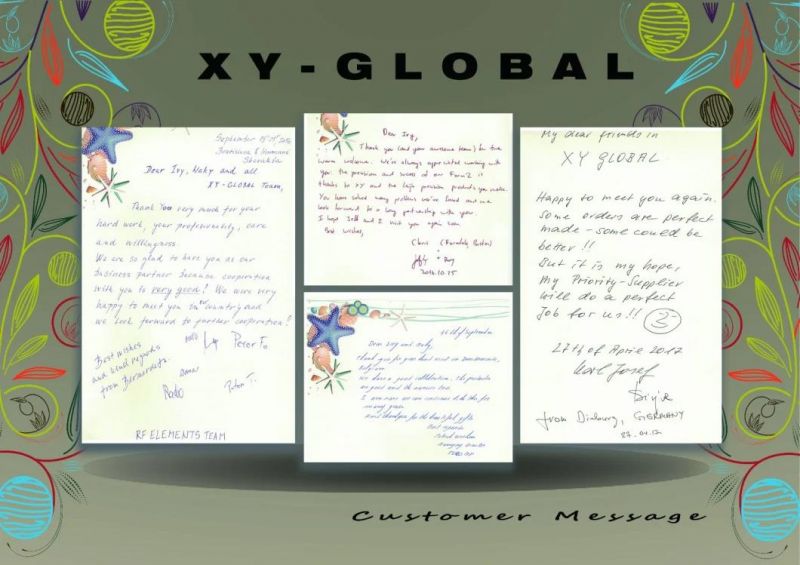 XY-GLOBAL
September
Bratislava & Humenné
Slovakia
Dear Ivy, and all
XY-GLOBAL Team,
Thank You very much for your
hard work, your professionality, care
and willingness.
We are so glad to have you as our
business partner because cooperation
with you is very good! We were very
happy to meet you in country and
we look forward to further cooperation!
Best wishes
and kind regards
from
Peter
Rado
Peter T.
RF ELEMENTS TEAM
Dear Ivy,
Thank you (and your awesome team) for the
warm welcome. We've always appreciated working with
you. the precision and success of our Form2 is
thanks to XY and the high precision products you make.
You have solved many problems we've faced and we
look forward to a long partnership with you
I hope Jeff and I visit you again soon
Best wishes,
Chris
2016.10.25
of September
Dear Ivy and
thank you for your kind visit in
We have a good collaboration, the products
are good and the service too.
I am sure we can continue like this for
many years
And thank you for the beautiful gifts
Best regards
My dear friends in
XY GLOBAL.
Happy to meet you again.
Some orders are perfect
made - some could be
better!!
But it is my hope,
my Priority-Supplier
will do a perfect
Job for us!!
27th of Aprile 2017
Karl Josef
from Duisburg, GERMANY
27.04.17
Customer Message